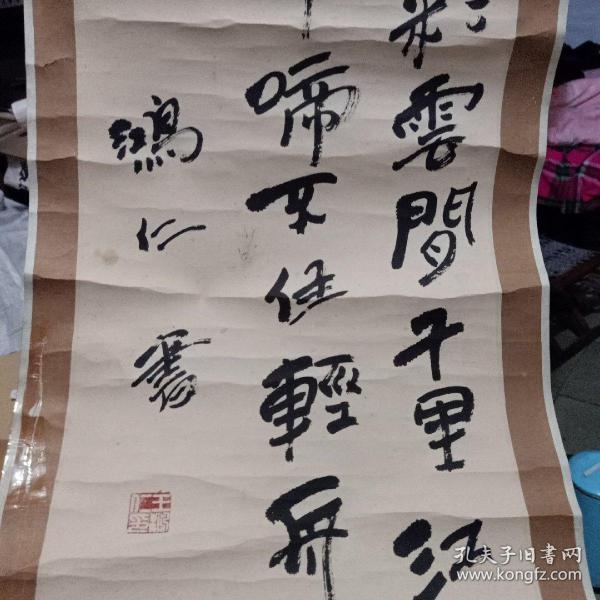 彩雲間千里江
啼不住輕舟
鴻仁書
王鴻仁印
孔夫子旧书网
www.kongfz.com